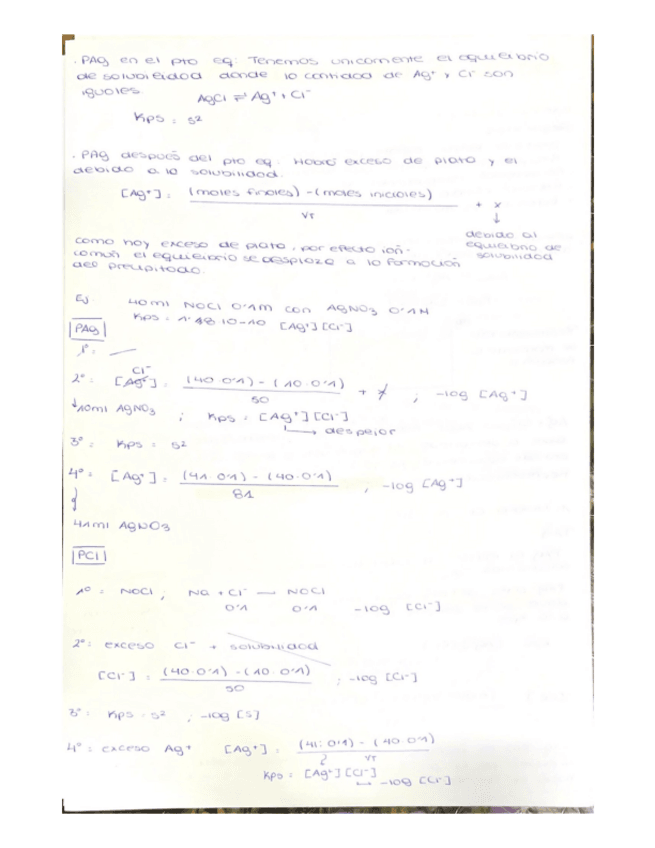 . PAg en el pto eq: Tenemos unicamente el equilibrio
de solubilidad donde la cantidad de Ag⁺ y Cl⁻ son
iguales.
AgCl ⇌ Ag⁺ + Cl⁻
Kps = s²
. PAg después del pto eq. Habrá exceso de plata y el
debido a la solubilidad.
[Ag⁺] = (moles finales) - (moles iniciales) / VT + x
↓
debido al
equilibrio de
solubilidad
como hay exceso de plata, por efecto ión-
común el equilibrio se desplaza a la formación
del precipitado.
Ej 40ml NaCl 0'1M con AgNO3 0'1M
Kps = 1'48·10-10 [Ag⁺][Cl⁻]
PAg
1º: —
Cl⁻
2º: [Ag⁺] = (40·0'1) - (10·0'1) / 50 + x ; -log [Ag⁺]
↓10ml AgNO3 ; Kps = [Ag⁺][Cl⁻]
→ despejar
3º: Kps = s²
4º: [Ag⁺] = (41·0'1) - (40·0'1) / 81 ; -log [Ag⁺]
41ml AgNO3
PCl
1º = NaCl ; Na + Cl⁻ — NaCl
0'1 0'1 -log [Cl⁻]
2º: exceso Cl⁻ + solubilidad
[Cl⁻] = (40·0'1) - (10·0'1) / 50 ; -log [Cl⁻]
3º: Kps = s² ; -log [s]
4º: exceso Ag⁺ [Ag⁺] = (41·0'1) - (40·0'1) / VT
Kps = [Ag⁺][Cl⁻]
→ -log [Cl⁻]